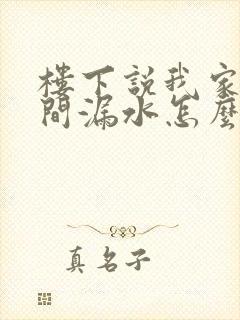 樓下說我家
間漏水怎麼
真名子